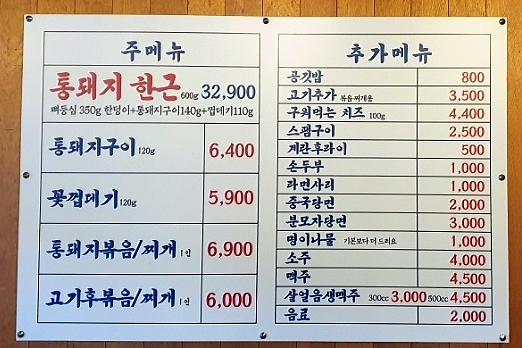 주메뉴
통돼지 한근 600g 32,900
뼈등심 350g 한덩이+통돼지구이140g+껍데기110g
통돼지구이 120g 6,400
꽃껍데기 120g 5,900
통돼지볶음/찌개 1인 6,900
고기후볶음/찌개 1인 6,000
추가메뉴
공깃밥 800
고기추가 볶음찌개용 3,500
구워먹는 치즈 100g 4,400
스팸구이 2,500
계란후라이 500
손두부 1,000
라면사리 1,000
중국당면 2,000
분모자당면 3,000
명이나물 기본보다 더 드려요 1,000
소주 4,000
맥주 4,500
살얼음생맥주 300cc 3,000 500cc 4,500
음료 2,000